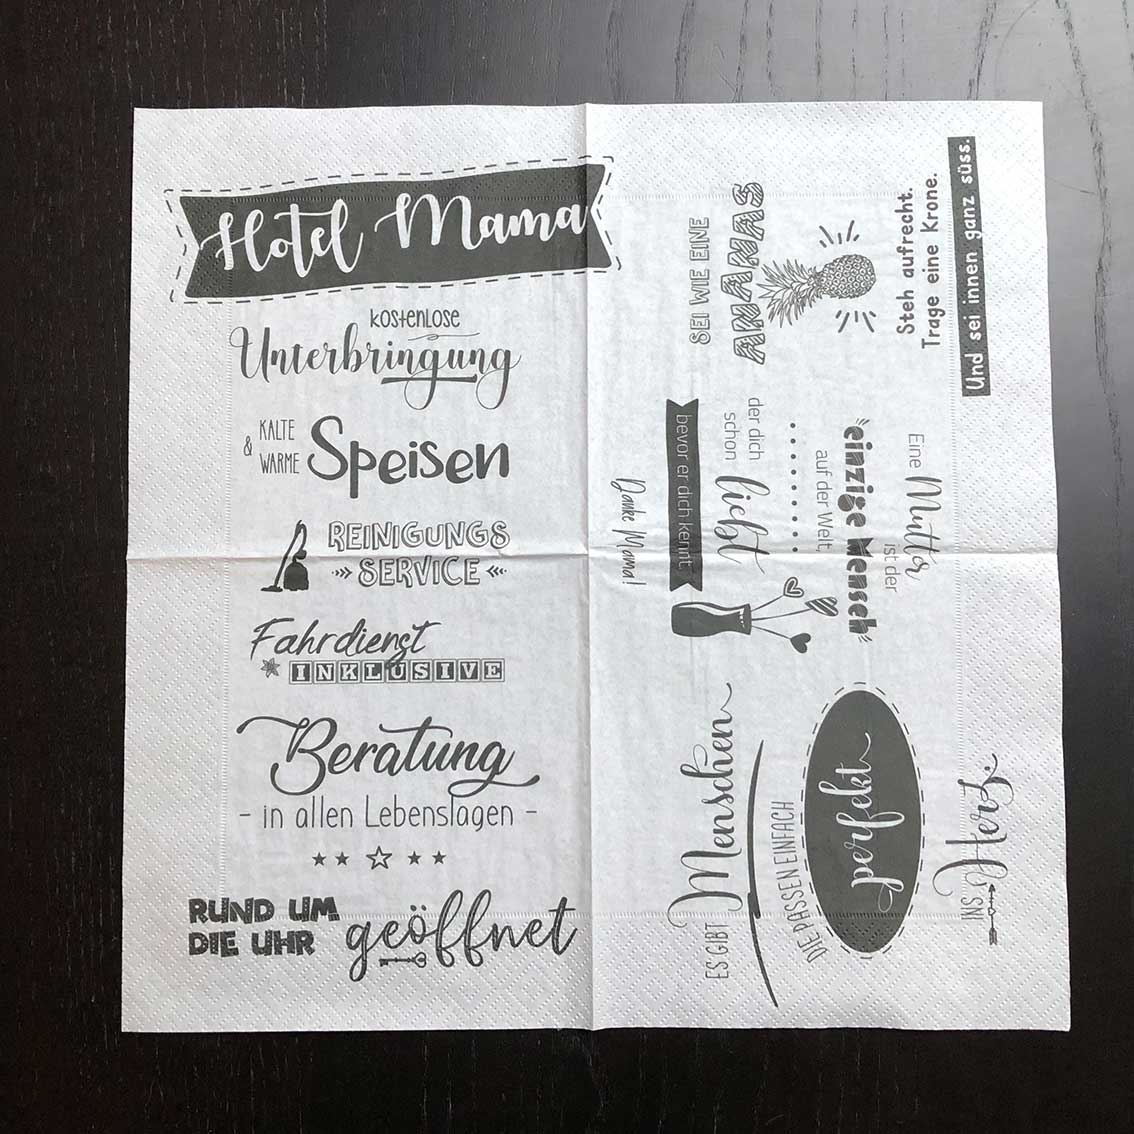 Hotel Mama
kostenlose
Unterbringung
KALTE
& WARME Speisen
REINIGUNGS
SERVICE
Fahrdienst
INKLUSIVE
Beratung
- in allen Lebenslagen -
RUND UM
DIE UHR geöffnet
SEI WIE EINE
ANANAS
Steh aufrecht.
Trage eine Krone.
Und sei innen ganz süss.
Eine Mutter
ist der
einzige Mensch
auf der Welt,
der dich
schon liebt
bevor er dich kennt.
Danke Mama!
ES GIBT Menschen
DIE PASSEN EINFACH
perfekt
INS Herz.